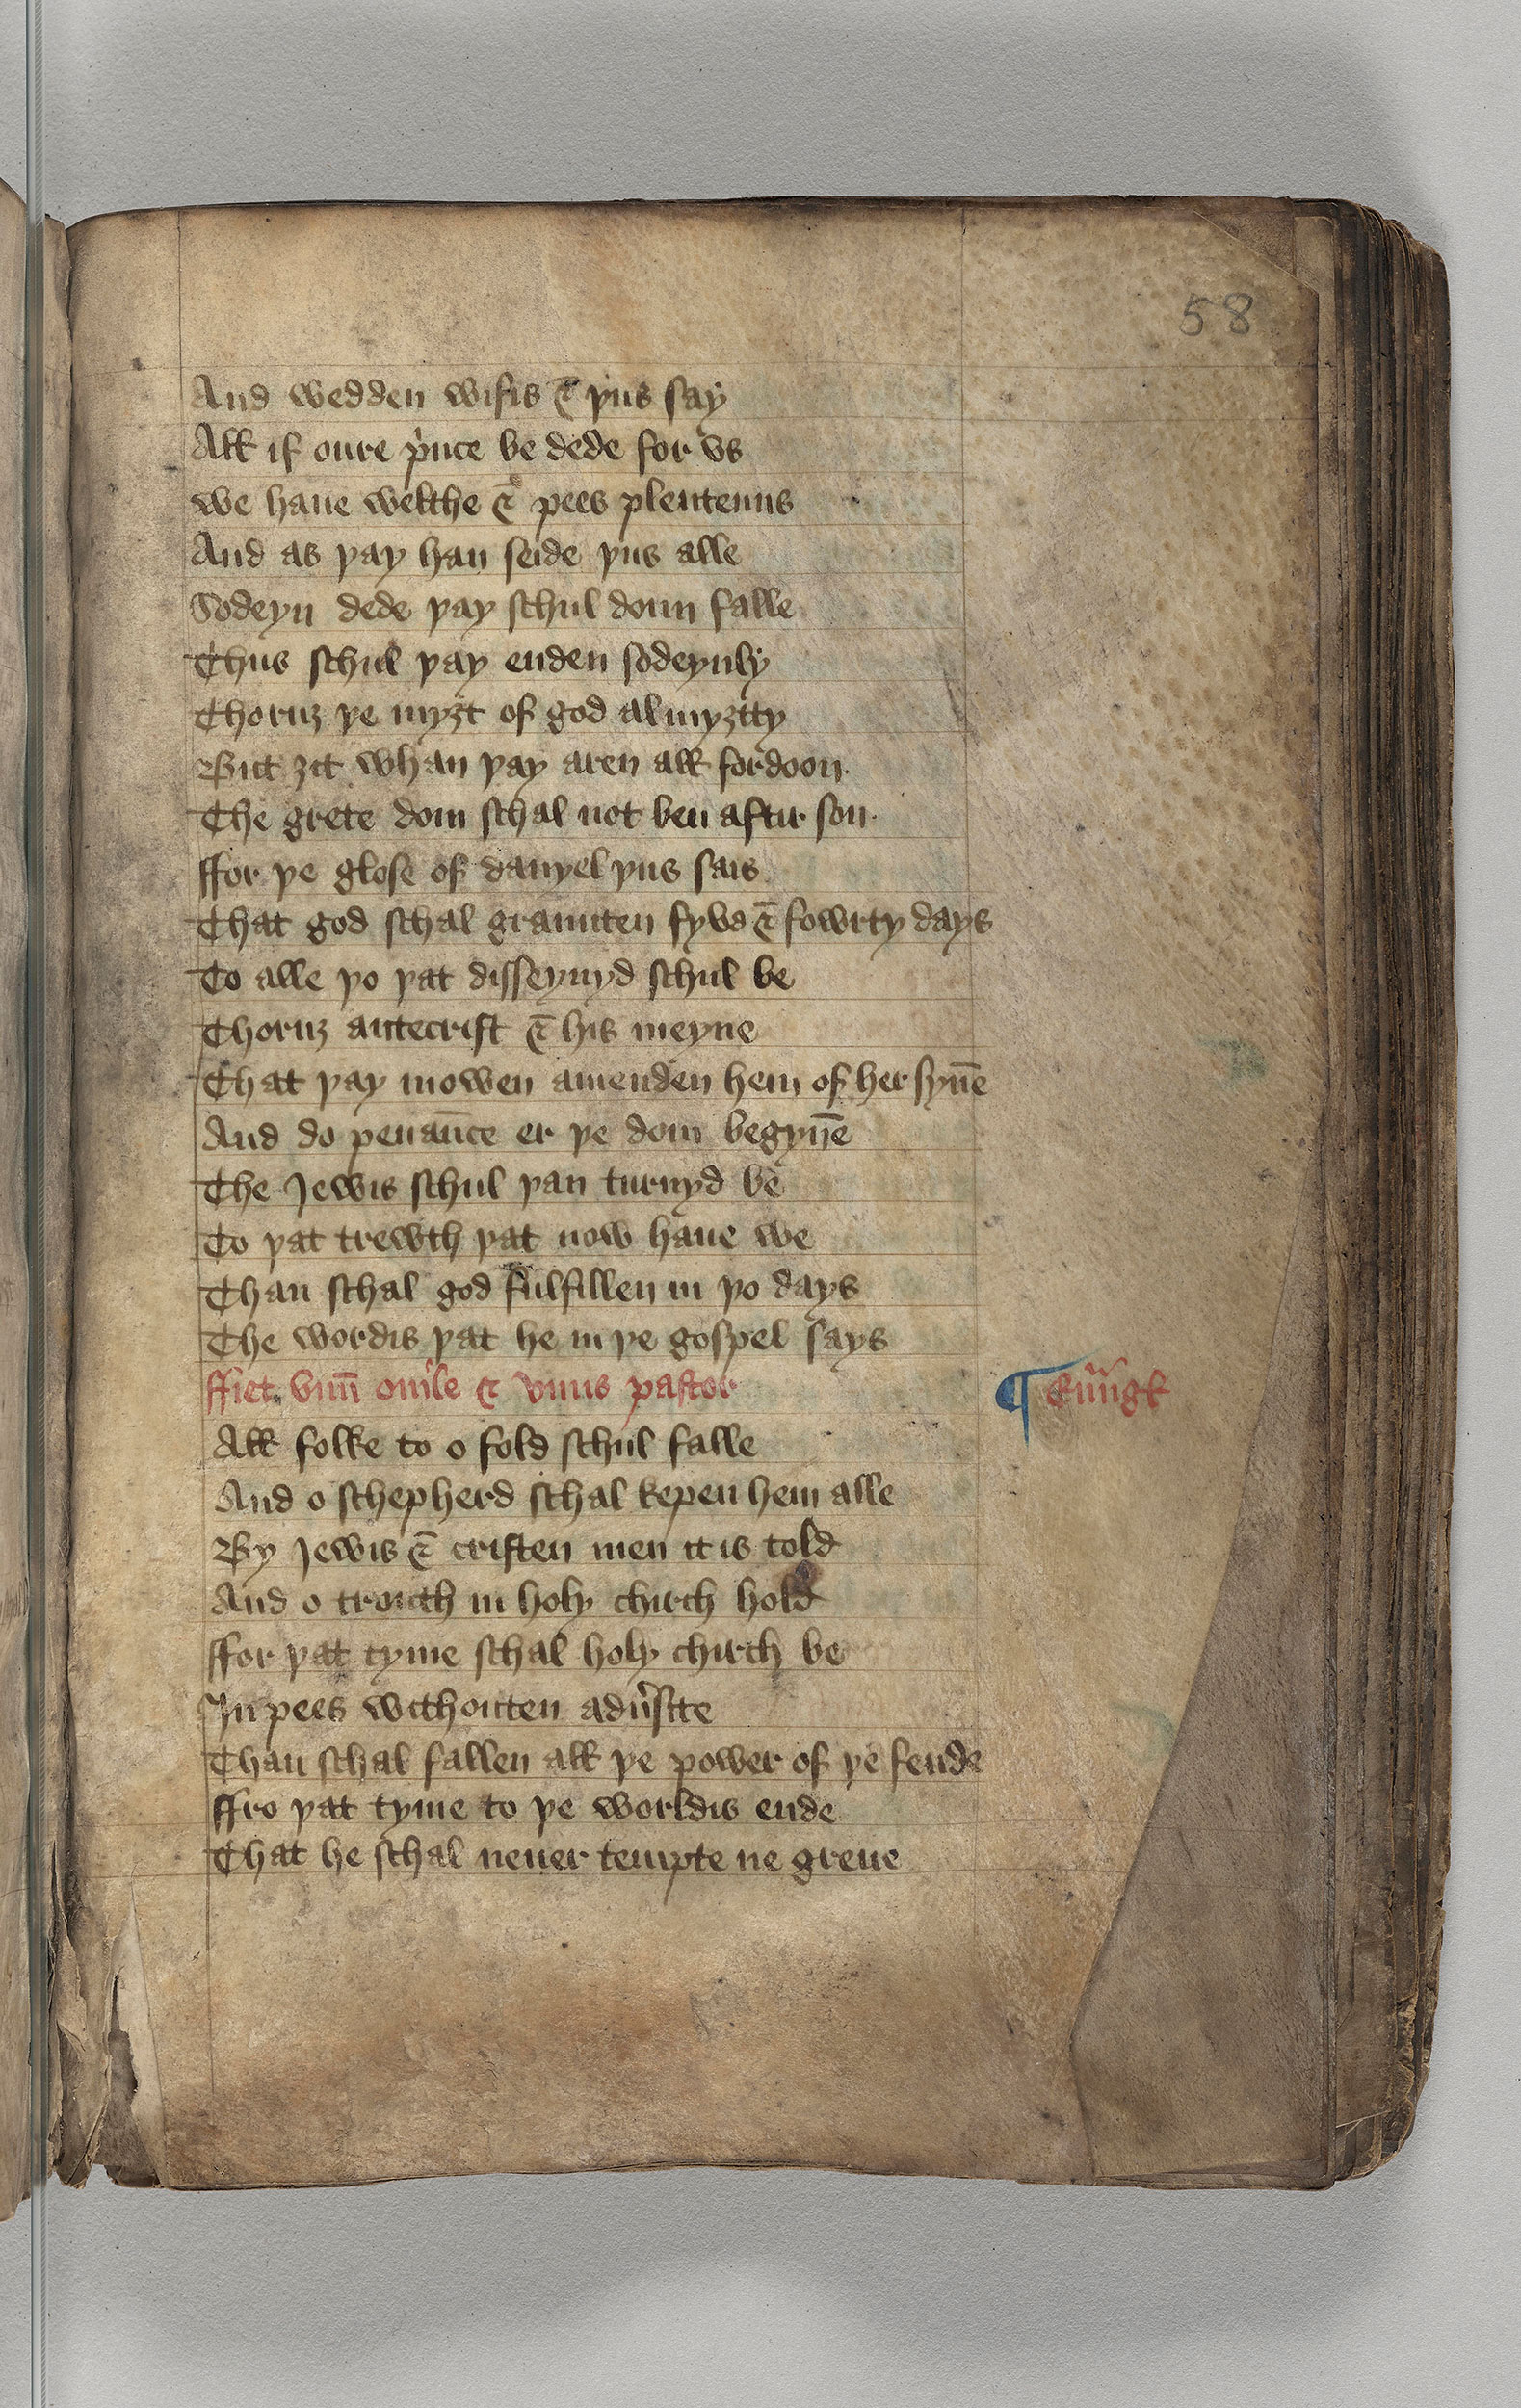 58
And wedden wifis & þus say
All if oure p'nce be dede for vs
we haue welthe & pees plenteuus
And as þay han seide þus alle
Sodeyn dede þay schul doun falle
Thus schul þay enden sodeynly
Thoruȝ þe myȝt of god almyȝtty
But ȝit whan þay aren all fordoon
The grete dom schal not ben aftir son
ffor þe glose of danyel þus sais
That god schal graunten fyue & fowrty days
To alle þo þat disseyuyd schul be
Thoruȝ antecrist & his meyne
That þay mowen amenden hem of her syn̄e
And do penan̄ce er þe dom begyn̄e
The Jewis schul þan turnyd be
To þat trewth þat now haue we
Than schal god fulfillen in þo days
The wordis þat he in þe gospel says
ffiet vnū ouile & vnus pastor ¶
All folke to o fold schul falle
And o schepherd schal kepen hem alle
By Jewis & cristen men it is told
And o trouth in holy chirch hold
ffor þat tyme schal holy chirch be
In pees withouten adu'site
Than schal fallen all þe power of þe fende
ffro þat tyme to þe worldis ende
That he schal neuer tempte ne greue